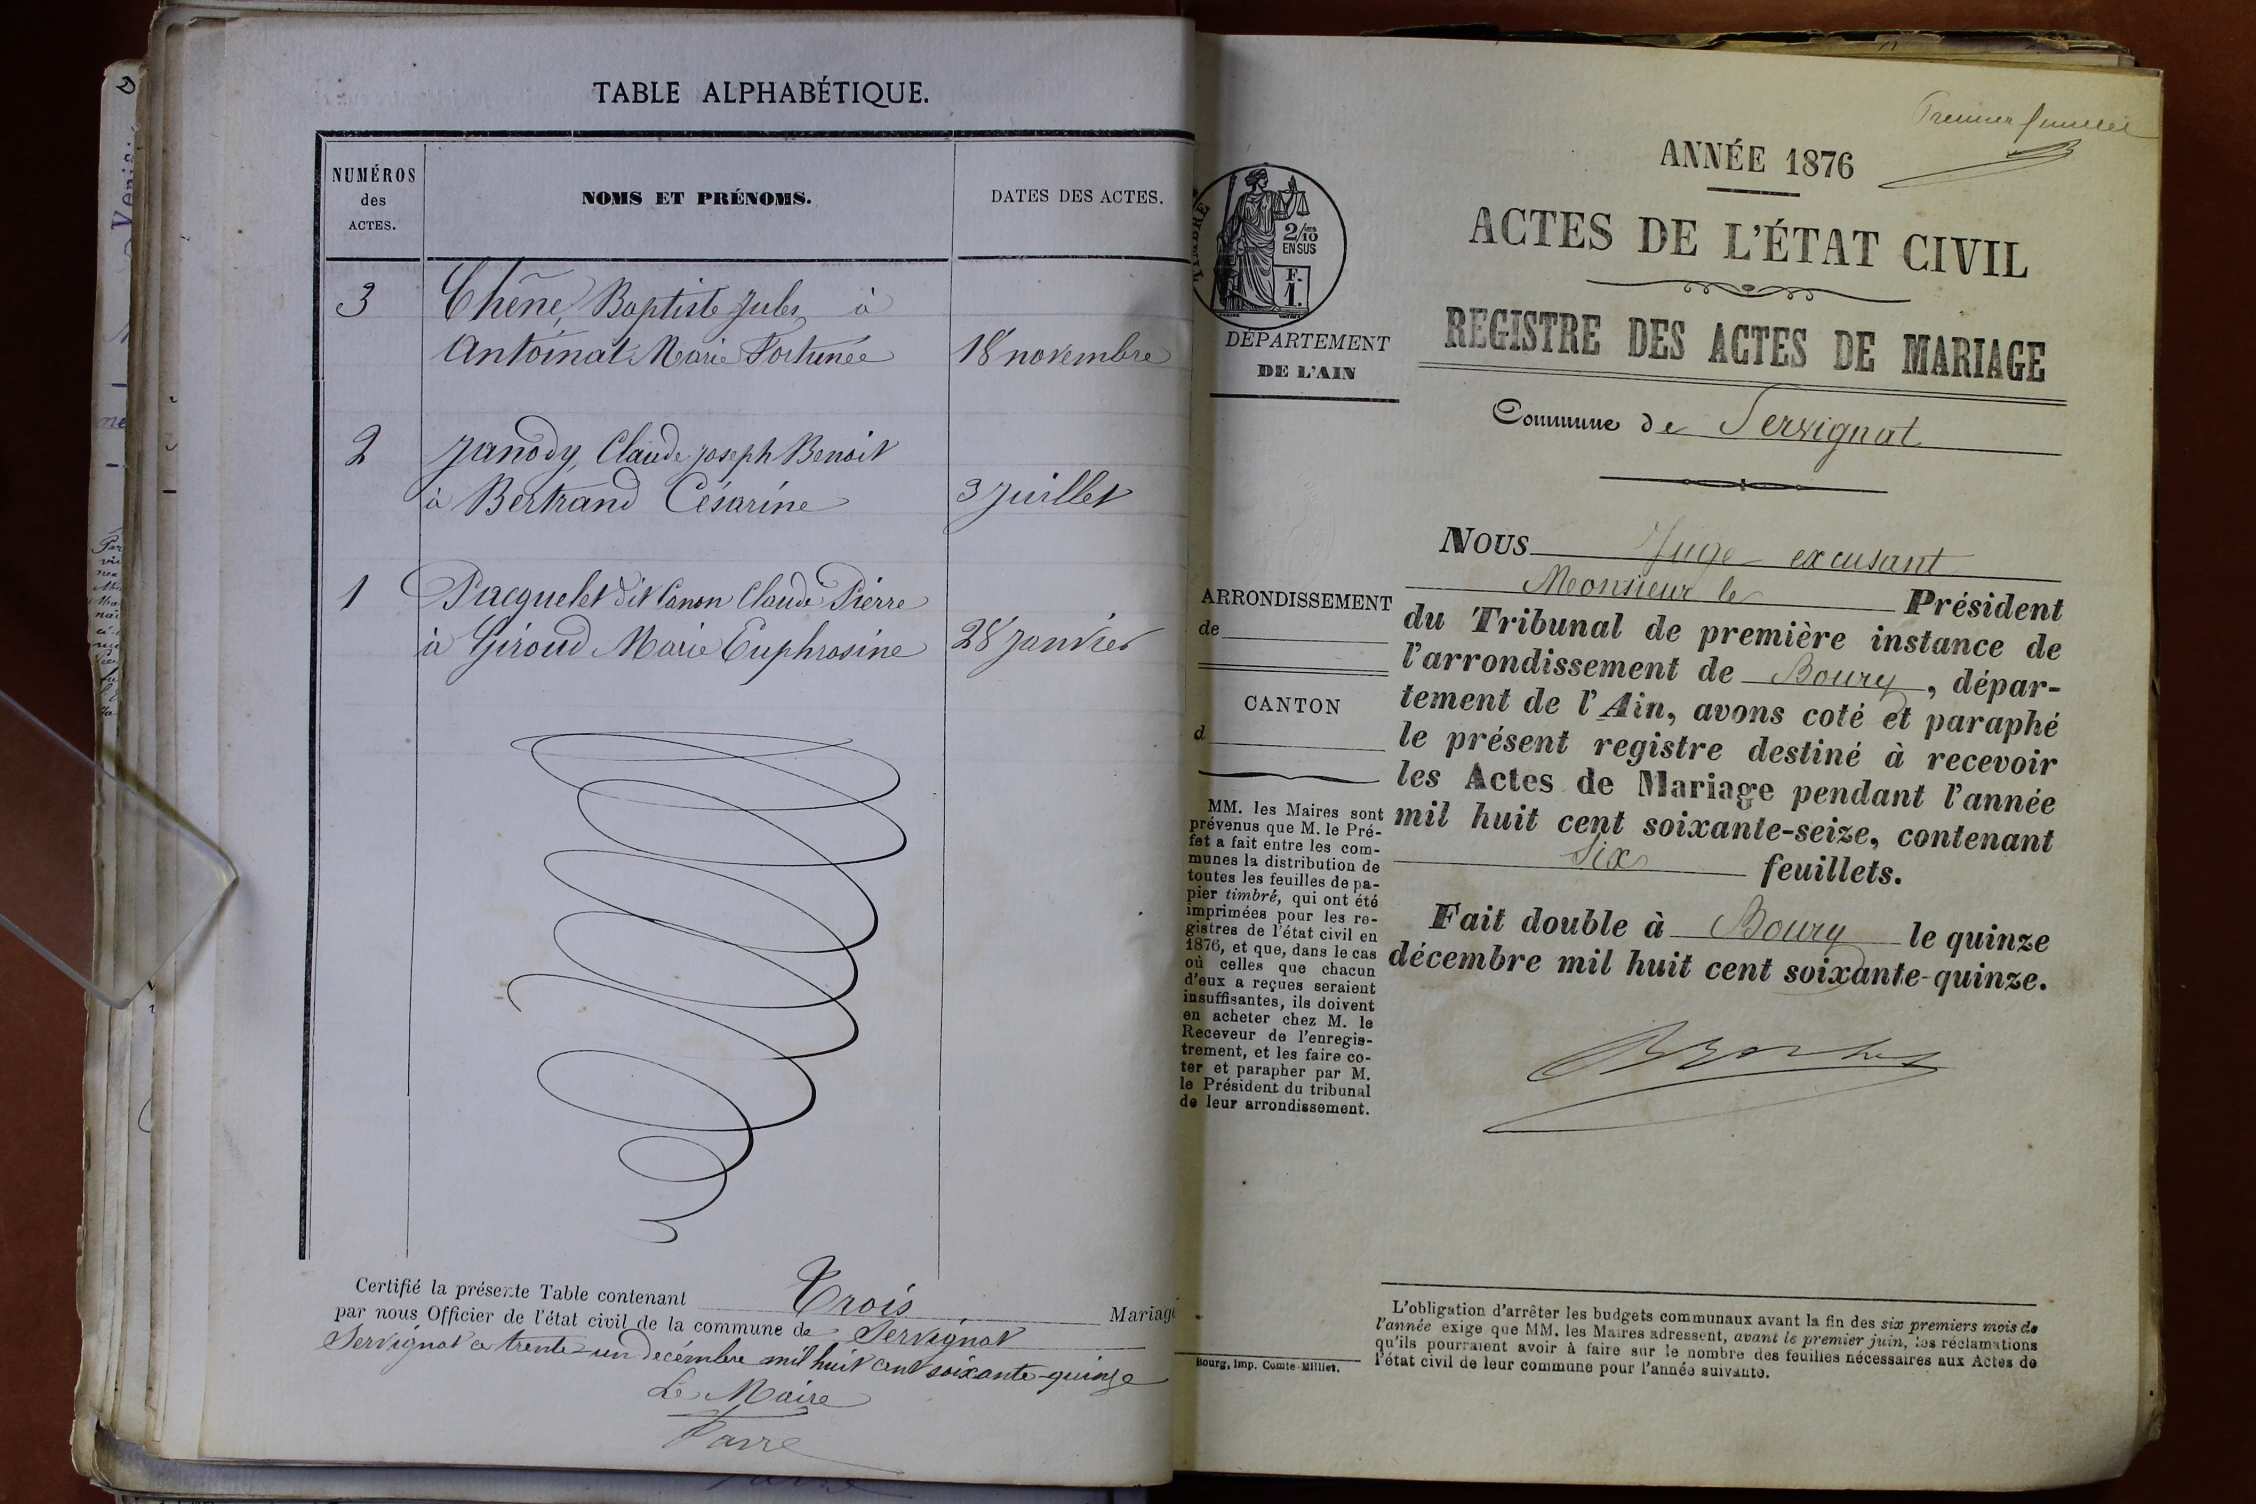 TABLE ALPHABÉTIQUE.
NUMÉROS
des
ACTES.
NOMS ET PRÉNOMS.
DATES DES ACTES.
3 Chêne, Baptiste Jules à
Antoinat Marie Fortunée 18 novembre
2 Janody, Claude Joseph Benoit
à Bertrand Césarine 3 Juillet
1 Pacquelet dit Canon Claude Pierre
à Giroud Marie Euphrosine 28 Janvier
Certifié la présente Table contenant Trois Mariag
par nous Officier de l'état civil de la commune de Servignat
Servignat ce trente-un décembre mil huit cent soixante-quinze
Le Maire
Favre
Premier feuillet
ANNÉE 1876
ACTES DE L'ÉTAT CIVIL
REGISTRE DES ACTES DE MARIAGE
Commune de Servignat
TIMBRE
2/10
EN SUS
F.
1.
DÉPARTEMENT
DE L'AIN
ARRONDISSEMENT
de
CANTON
d
MM. les Maires sont
prévenus que M. le Pré-
fet a fait entre les com-
munes la distribution de
toutes les feuilles de pa-
pier timbré, qui ont été
imprimées pour les re-
gistres de l'état civil en
1876, et que, dans le cas
où celles que chacun
d'eux a reçues seraient
insuffisantes, ils doivent
en acheter chez M. le
Receveur de l'enregis-
trement, et les faire co-
ter et parapher par M.
le Président du tribunal
de leur arrondissement.
Bourg, imp. Comte-Milliet.
NOUS Juge excusant
Monsieur le Président
du Tribunal de première instance de
l'arrondissement de Bourg, dépar-
tement de l'Ain, avons coté et paraphé
le présent registre destiné à recevoir
les Actes de Mariage pendant l'année
mil huit cent soixante-seize, contenant
Six feuillets.
Fait double à Bourg le quinze
décembre mil huit cent soixante-quinze.
L'obligation d'arrêter les budgets communaux avant la fin des six premiers mois de
l'année exige que MM. les Maires adressent, avant le premier juin, les réclamations
qu'ils pourraient avoir à faire sur le nombre des feuilles nécessaires aux Actes de
l'état civil de leur commune pour l'année suivante.